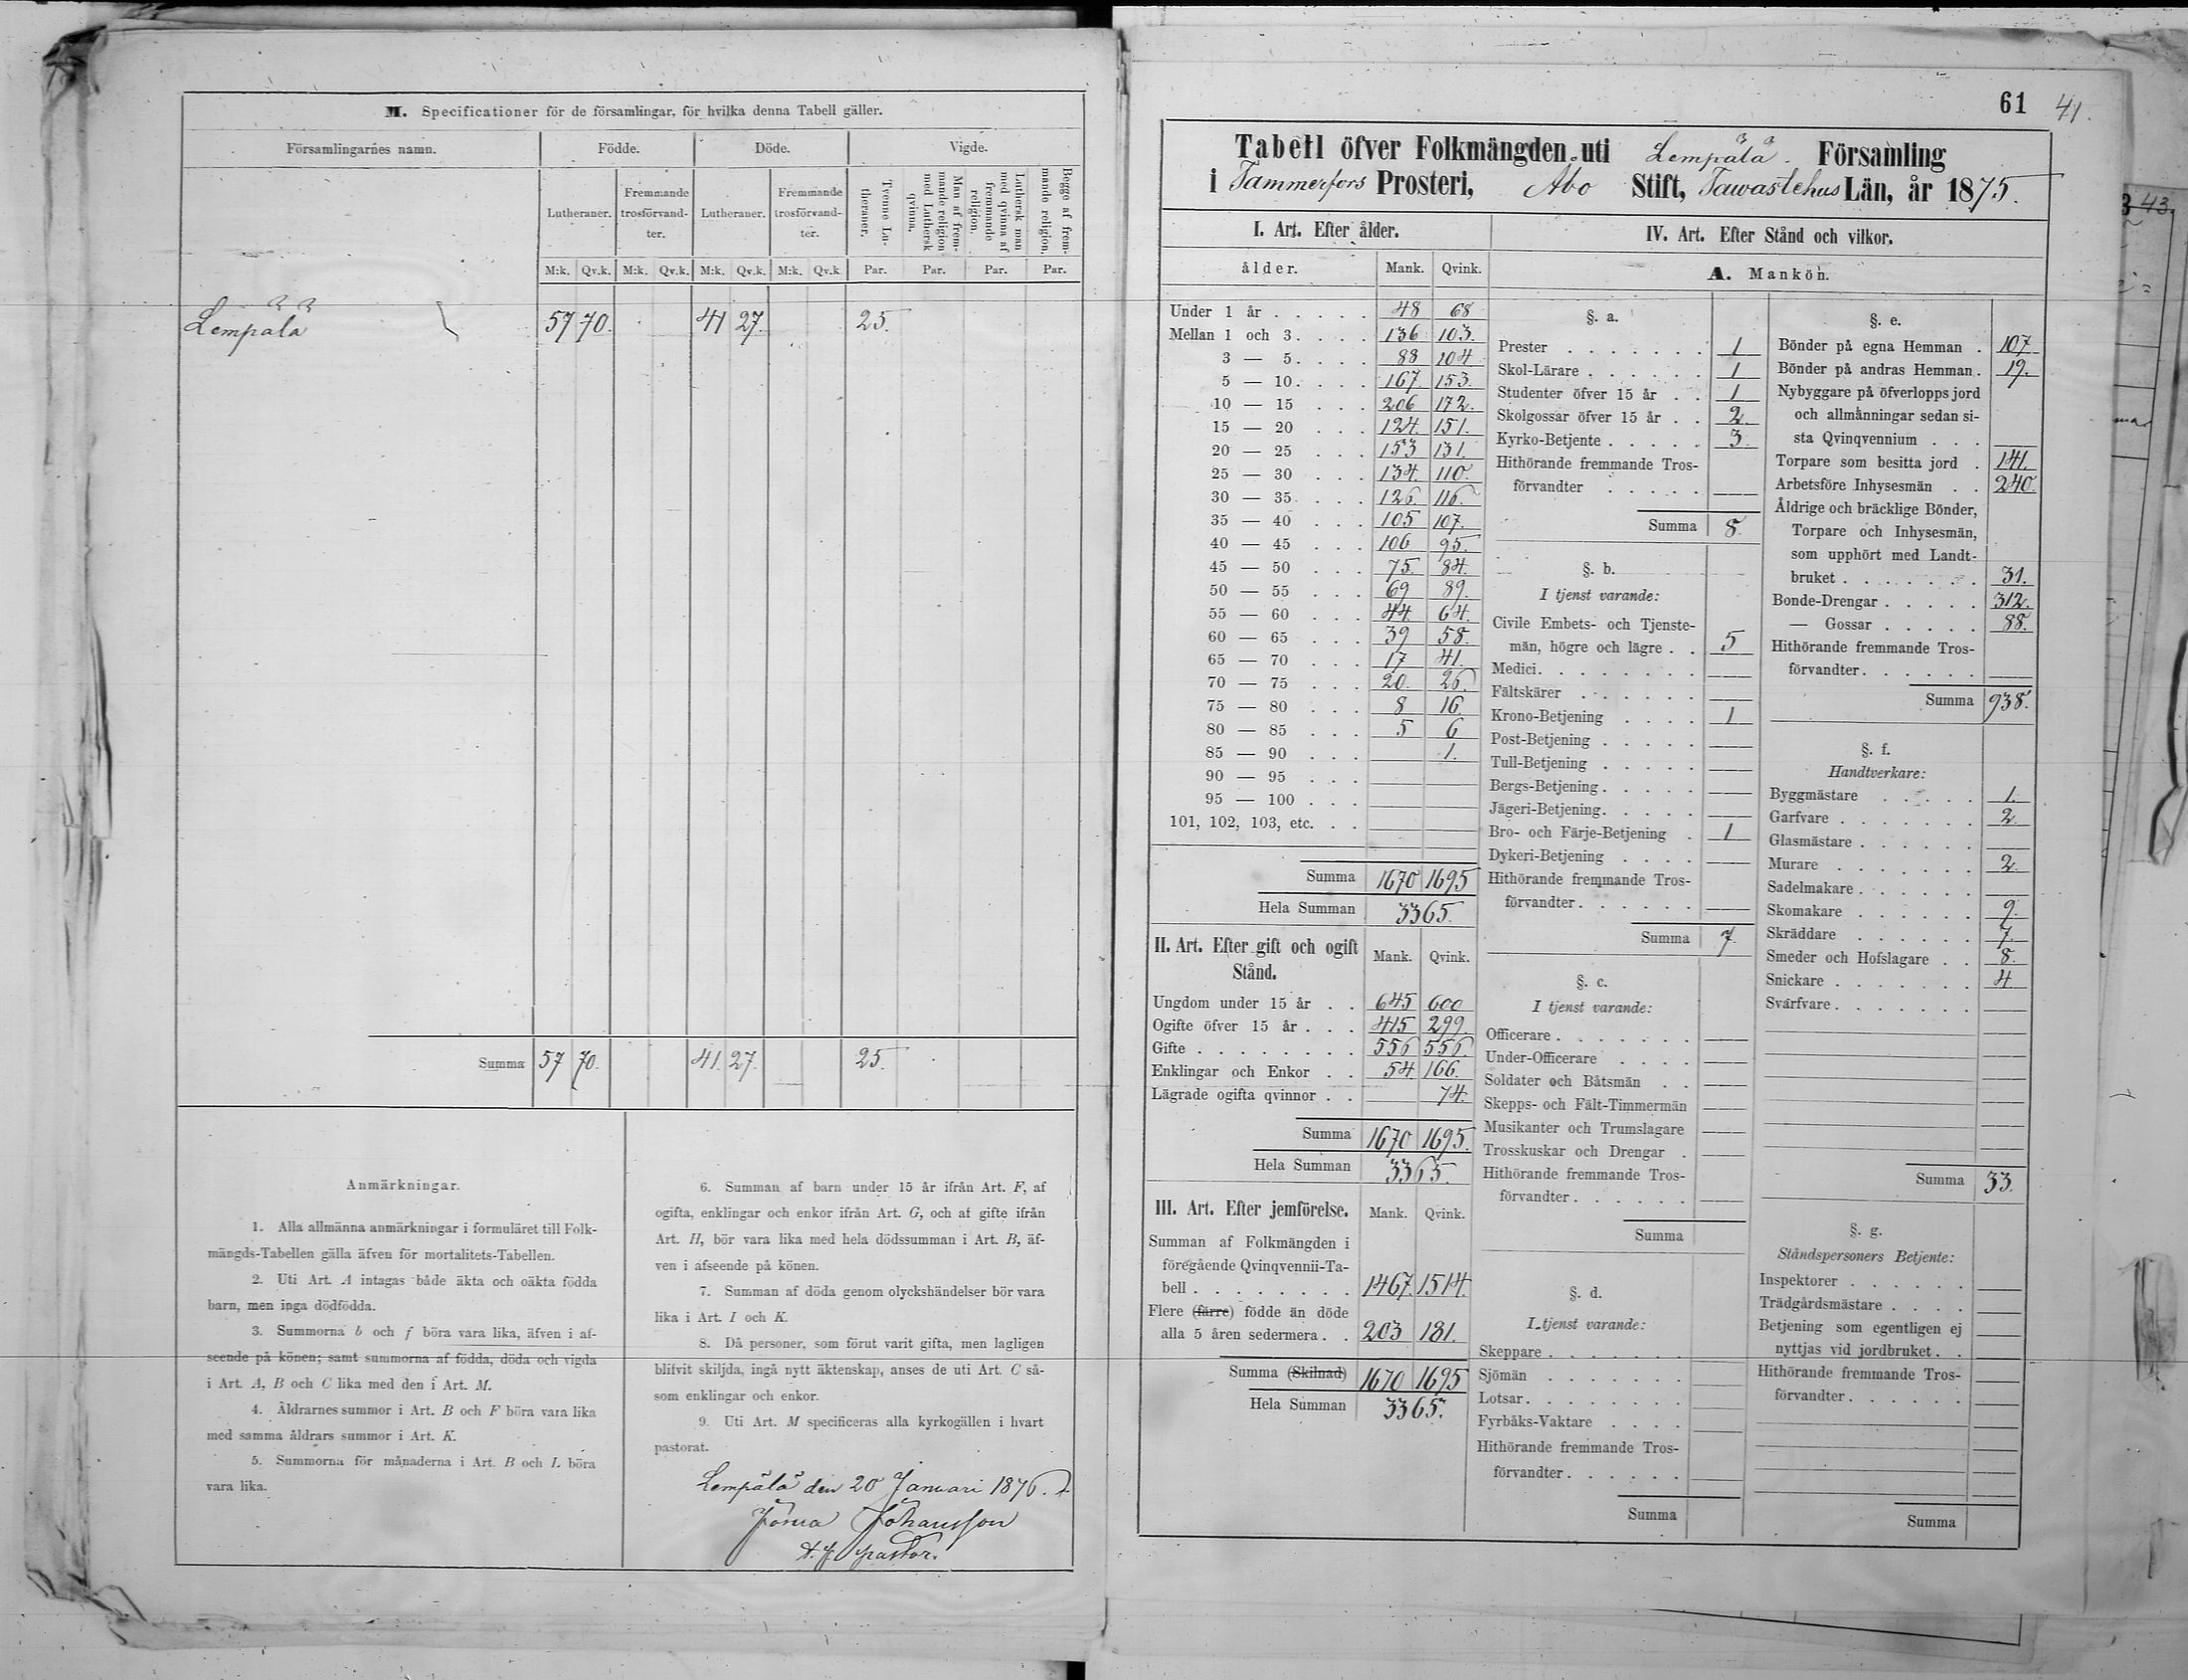 M. Specificationer för de församlingar, för hvilka denna Tabell gäller.
Församlingarnes namn. Födde. Döde. Vigde.
Lutheraner. Fremmande trosförvandter. Lutheraner. Fremmande trosförvandter. Tvenne Lutheraner. Man af fremmande religion med Luthersk qvinna. Luthersk man med qvinna af fremmande religion. Begge af fremmande religion.
M:k. Qv.k. M:k. Qv.k. M:k. Qv.k. M:k. Qv.k. Par. Par. Par. Par.
Lempälä 57 70. 41 27. 25.
Summa 57 70. 41. 27. 25.
Anmärkningar.
1. Alla allmänna anmärkningar i formuläret till Folk-
mängds-Tabellen gälla äfven för mortalitets-Tabellen.
2. Uti Art. A intagas både äkta och oäkta födda
barn, men inga dödfödda.
3. Summorna b och f böra vara lika, äfven i af-
seende på könen; samt summorna af födda, döda och vigda
i Art. A, B och C lika med den i Art. M.
4. Åldrarnes summor i Art. B och F böra vara lika
med samma åldrars summor i Art. K.
5. Summorna för månaderna i Art. B och L böra
vara lika.
6. Summan af barn under 15 år ifrån Art. F, af
ogifta, enklingar och enkor ifrån Art. G, och af gifte ifrån
Art. H, bör vara lika med hela dödssumman i Art. B, äf-
ven i afseende på könen.
7. Summan af döda genom olyckshändelser bör vara
lika i Art. I och K.
8. Då personer, som förut varit gifta, men lagligen
blifvit skiljda, ingå nytt äktenskap, anses de uti Art. C så-
som enklingar och enkor.
9. Uti Art. M specificeras alla kyrkogällen i hvart
pastorat.
Lempälä den 20 Januari 1876.
Johansson
pastor.
61 41.
Tabell öfver Folkmängden uti Lempälä. Församling
i Tammerfors Prosteri, Abo Stift, Tawastehus Län, år 1875.
I. Art. Efter ålder.
ålder. Mank. Qvink.
Under 1 år 48 68
Mellan 1 och 3 136 103.
3 — 5 88 104
5 — 10 167. 153.
10 — 15 206 172.
15 — 20 124. 151.
20 — 25 153 131.
25 — 30 134. 110.
30 — 35 126. 116.
35 — 40 105 107.
40 — 45 106 95.
45 — 50 75. 84.
50 — 55 69 89.
55 — 60 44. 64.
60 — 65 39 58.
65 — 70 17 41.
70 — 75 20. 26.
75 — 80 8 16.
80 — 85 5 6
85 — 90 1.
90 — 95
95 — 100
101, 102, 103, etc.
Summa 1670 1695
Hela Summan 3365.
II. Art. Efter gift och ogift Stånd. Mank. Qvink.
Ungdom under 15 år 645 600
Ogifte öfver 15 år 415 299.
Gifte 556 556.
Enklingar och Enkor 54. 166.
Lägrade ogifta qvinnor 74.
Summa 1670 1695.
Hela Summan 3365.
III. Art. Efter jemförelse. Mank. Qvink.
Summan af Folkmängden i
föregående Qvinqvennii-Ta-
bell 1467. 1514.
Flere (färre) födde än döde
alla 5 åren sedermera 203 181.
Summa (Skilnad) 1670 1695
Hela Summan 3365.
IV. Art. Efter Stånd och vilkor.
A. Mankön.
§. a.
Prester 1
Skol-Lärare 1
Studenter öfver 15 år 1
Skolgossar öfver 15 år 2.
Kyrko-Betjente 3.
Hithörande fremmande Tros-
förvandter
Summa 8.
§. b.
I tjenst varande:
Civile Embets- och Tjenste-
män, högre och lägre 5
Medici
Fältskärer
Krono-Betjening 1
Post-Betjening
Tull-Betjening
Bergs-Betjening
Jägeri-Betjening
Bro- och Färje-Betjening 1
Dykeri-Betjening
Hithörande fremmande Tros-
förvandter
Summa 7.
§. c.
I tjenst varande:
Officerare
Under-Officerare
Soldater och Båtsmän
Skepps- och Fält-Timmermän
Musikanter och Trumslagare
Trosskuskar och Drengar
Hithörande fremmande Tros-
förvandter
Summa
§. d.
I tjenst varande:
Skeppare
Sjömän
Lotsar
Fyrbåks-Vaktare
Hithörande fremmande Tros-
förvandter
Summa
§. e.
Bönder på egna Hemman 107.
Bönder på andras Hemman 19.
Nybyggare på öfverlopps jord
och allmänningar sedan si-
sta Qvinqvennium
Torpare som besitta jord 141.
Arbetsföre Inhysesmän 240.
Åldrige och bräcklige Bönder,
Torpare och Inhysesmän,
som upphört med Landt-
bruket 31.
Bonde-Drengar 312.
— Gossar 88.
Hithörande fremmande Tros-
förvandter
Summa 938.
§. f.
Handtverkare:
Byggmästare 1.
Garfvare 2
Glasmästare
Murare 2.
Sadelmakare
Skomakare 9.
Skräddare 7.
Smeder och Hofslagare 8.
Snickare 4
Svarfvare
Summa 33.
§. g.
Ståndspersoners Betjente:
Inspektorer
Trädgårdsmästare
Betjening som egentligen ej
nyttjas vid jordbruket
Hithörande fremmande Tros-
förvandter
Summa
43.